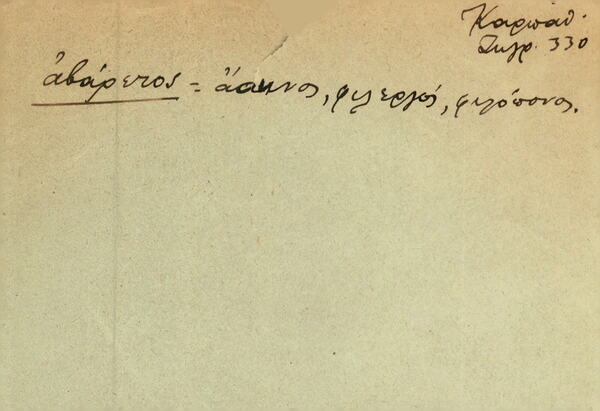 Καρπαθ.
Ζωγρ. 330
ἀβάρετος = ἄοκνος, φιλεργός, φιλόπονος.